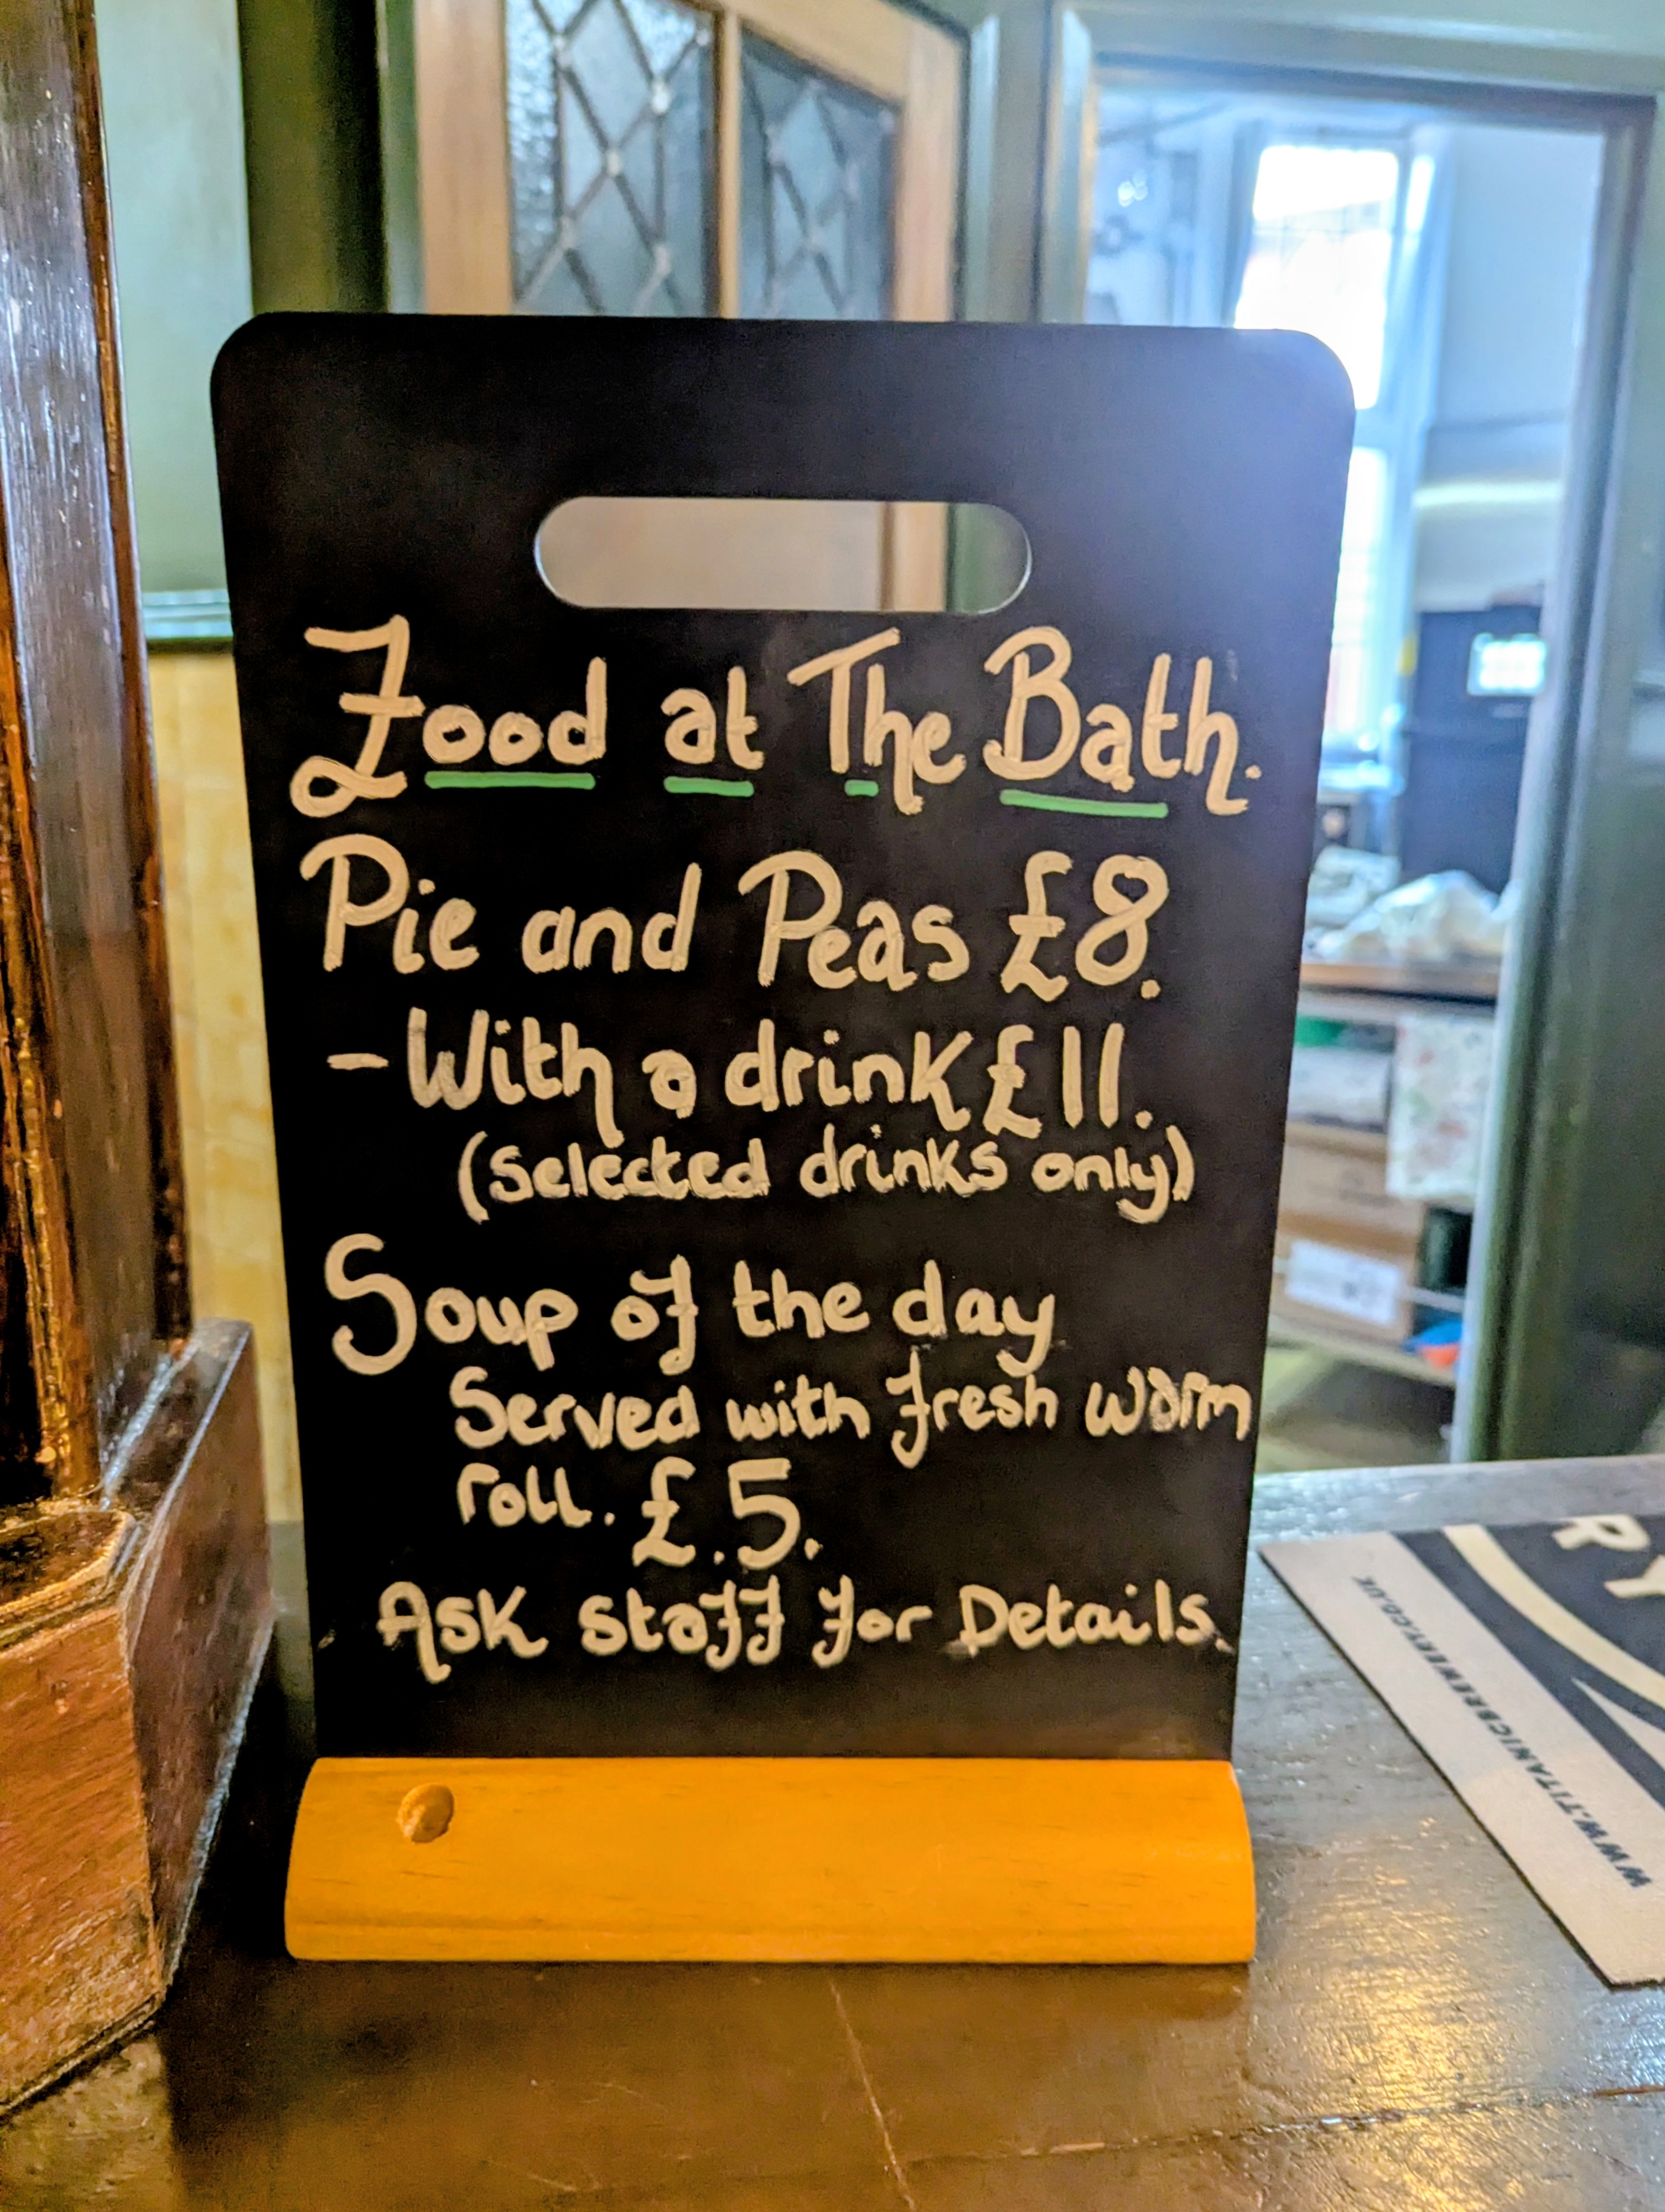 Food at The Bath.
Pie and Peas £8.
- With a drink £11.
(Selected drinks only)
Soup of the day
Served with fresh warm
roll. £.5.
Ask staff for Details.
RY
WWW.TITANICBREWERY.CO.UK